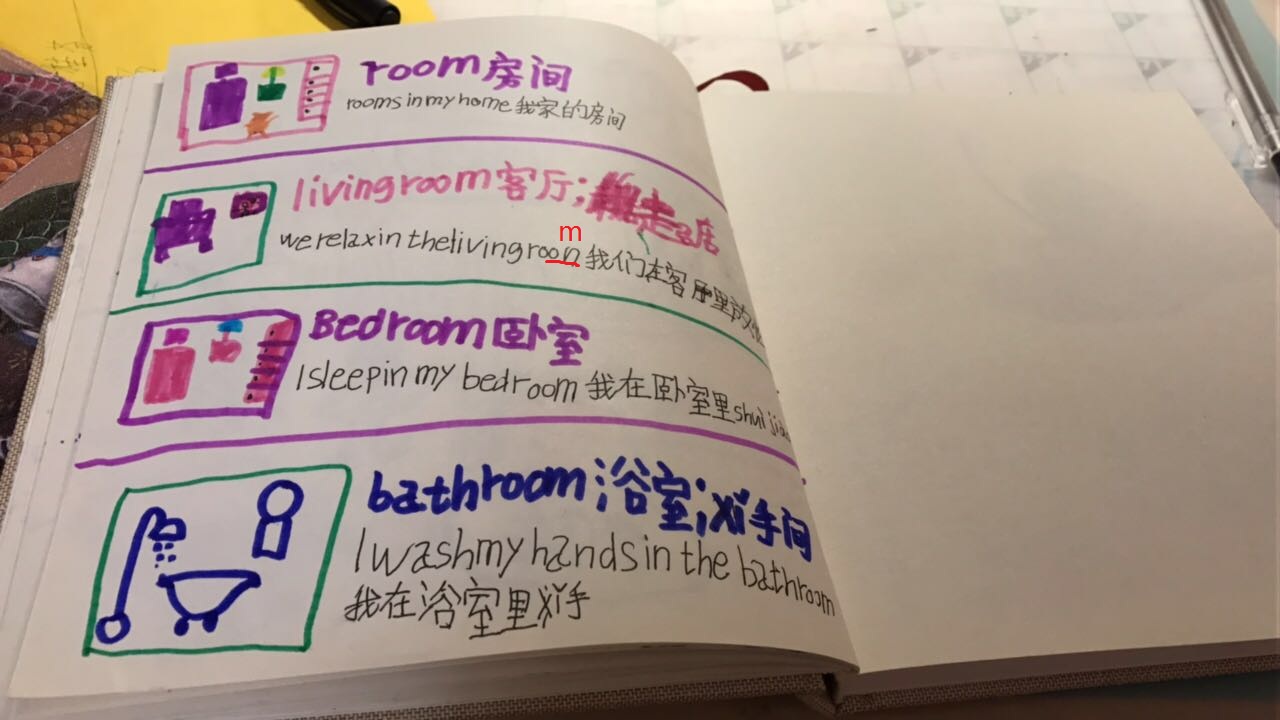 room 房间
rooms in my home 我家的房间
livingroom 客厅;
we relax in the living roon 我们在客厅里放
m
Bedroom 卧室
I sleep in my bedroom 我在卧室里shuì
bathroom 浴室;xǐ手间
I wash my hands in the bathroom
我在浴室里xǐ手